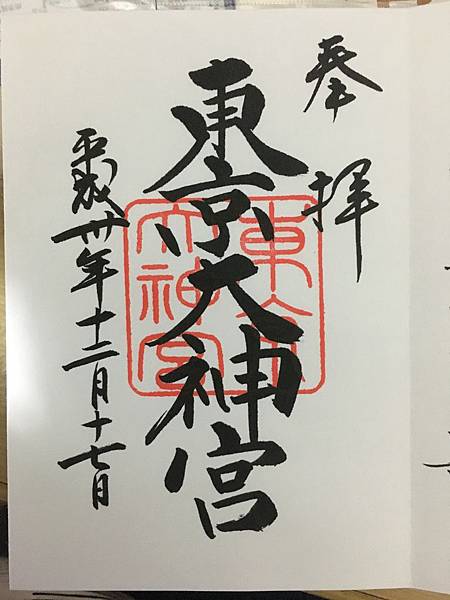 奉拝
東京大神宮
東京
大神宮
平成卅年十二月十七日